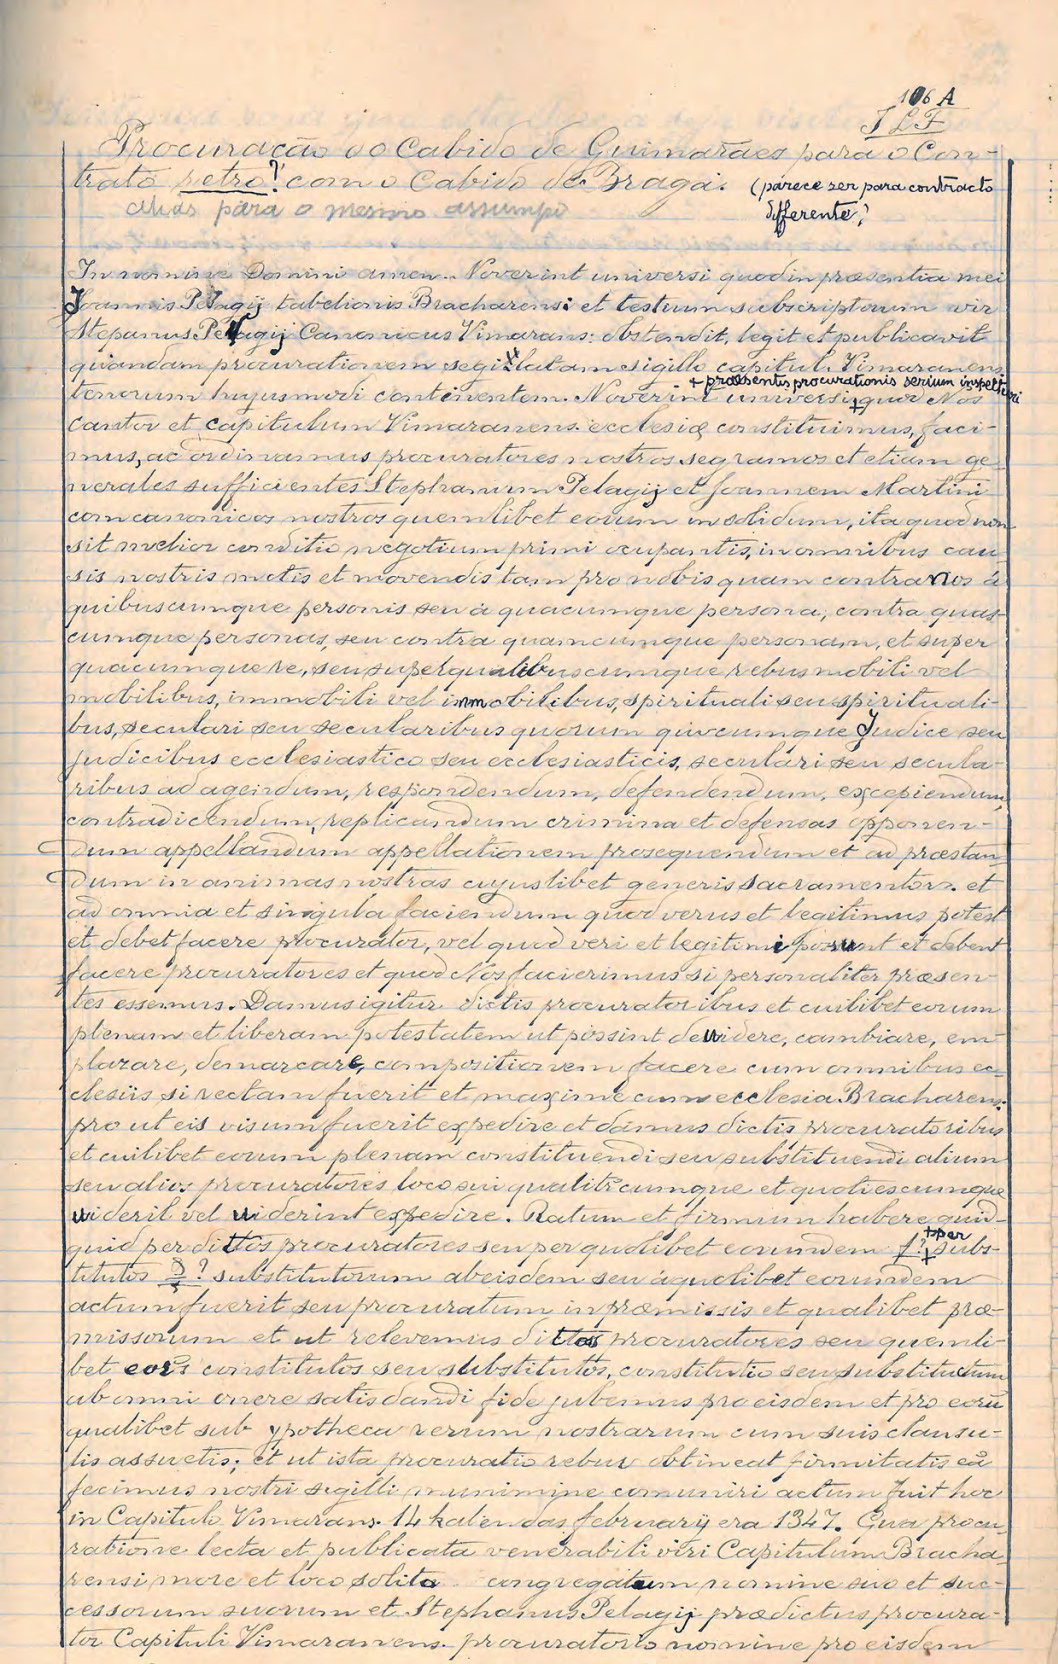 106 A
I L F
Procuração do Cabido de Guimarães para o Con-
trato retro? com o Cabido de Braga. (parece ser para contracto
differente?)
para o mesmo assumpto
In nomine Domini amen. Noverint universi quod in præsentia mei
Joannis Pelagij tabelionis Bracharensi: et testium subscriptorum vir
Stepanus Pelagij Canonicus Vimarans: obstendit, legit et publicavit
quandam procurationem sigillatam sigillo capituli Vimaranens
+ præsentis procurationis serium inspecturi
tenorum hujusmodi continentem. Noverint universi + quod Nos
Cantor et capitulum Vimaranens. ecclesiæ constituimus, faci-
mus, ac ordinamus procuratores nostros segramos et etiam ge
nerales sufficientes Stephanum Pelagij et Joannem Martini
comcanonicos nostros quemlibet eorum in solidum, ita quod non
sit melior conditio negotium primi ocupantis, in omnibus cau
sis nostris motis et movendis tam pro nobis quam contra nos á
quibuscumque personis seu á quacumque persona, contra quas-
cumque personas, seu contra quamcumque personam, et super
quacumque re, seu super quibuscumque rebus mobili vel
mobilibus, immobili vel immobilibus, spirituali seu spirituali-
bus, seculari seu secularibus quorum quocumque Judice seu
judicibus ecclesiastico seu ecclesiasticis, seculari seu secula-
ribus ad agendum, respondendum, defendendum, excepiendum,
contradicendum, replicandum crimina et defensas opponen-
dum appellandum appellationem prosequendum et ad præstan
dum in animas nostras cujuslibet generis sacramentor. et
ad omnia et singula faciendum quod verus et legitimus potest
et debet facere procurator, vel quod veri et legitimi possunt et debent
facere procuratores et quod Nos facierimus si personaliter præsen-
tes essemus. Damus igitur dictis procuratoribus et cuilibet eorum
plenam et liberam potestatem ut possint dewidere, cambiare, em
plazare, demarcare, compositionem facere cum omnibus ec-
clesiis si rectam fuerit et maxime cum ecclesia Bracharens.
pro ut eis visum fuerit expedire et damus dictis procuratoribus
et cuilibet eorum plenam constituendi seu substituendi alium
seu alios procuratores loco sui qualitercumque et quotiescumque
uideril vel uiderint expedire. Ratum et firmum habere quid-
+ per
quid per dittos procuratores seu per quolibet eorumdem f? + subs-
titutos D? substitutorum abeisdem seu á quolibet eorumdem
actum fuerit seu procuratum in præmissis et qualibet præ-
missorum et ut relevemus dittos procuratores seu quemli-
bet eor's constitutos seu substitutos, constitutio seu substitutum
ab omni onere satisdandi fide jubemus pro eisdem et pro eorũ
qualibet sub ypotheca rerum nostrarum cum suis clausu-
lis assuetis; et ut ista procuratio rebur obtineat firmitatis eã
fecimus nostri sigilli munimine comuniri actum fuit hoc
in Capitulo Vimarans. 14 kalendas februarij era 1347. Qua procu-
ratione lecta et publicata venerabili viri Capitulum Bracha
rensi more et loco solito congregatum nomine suo et suc-
cessorum suorum et Stephanus Pelagij prædictus procura-
tor Capituli Vimaranens. procuratorio nomine pro eisdem